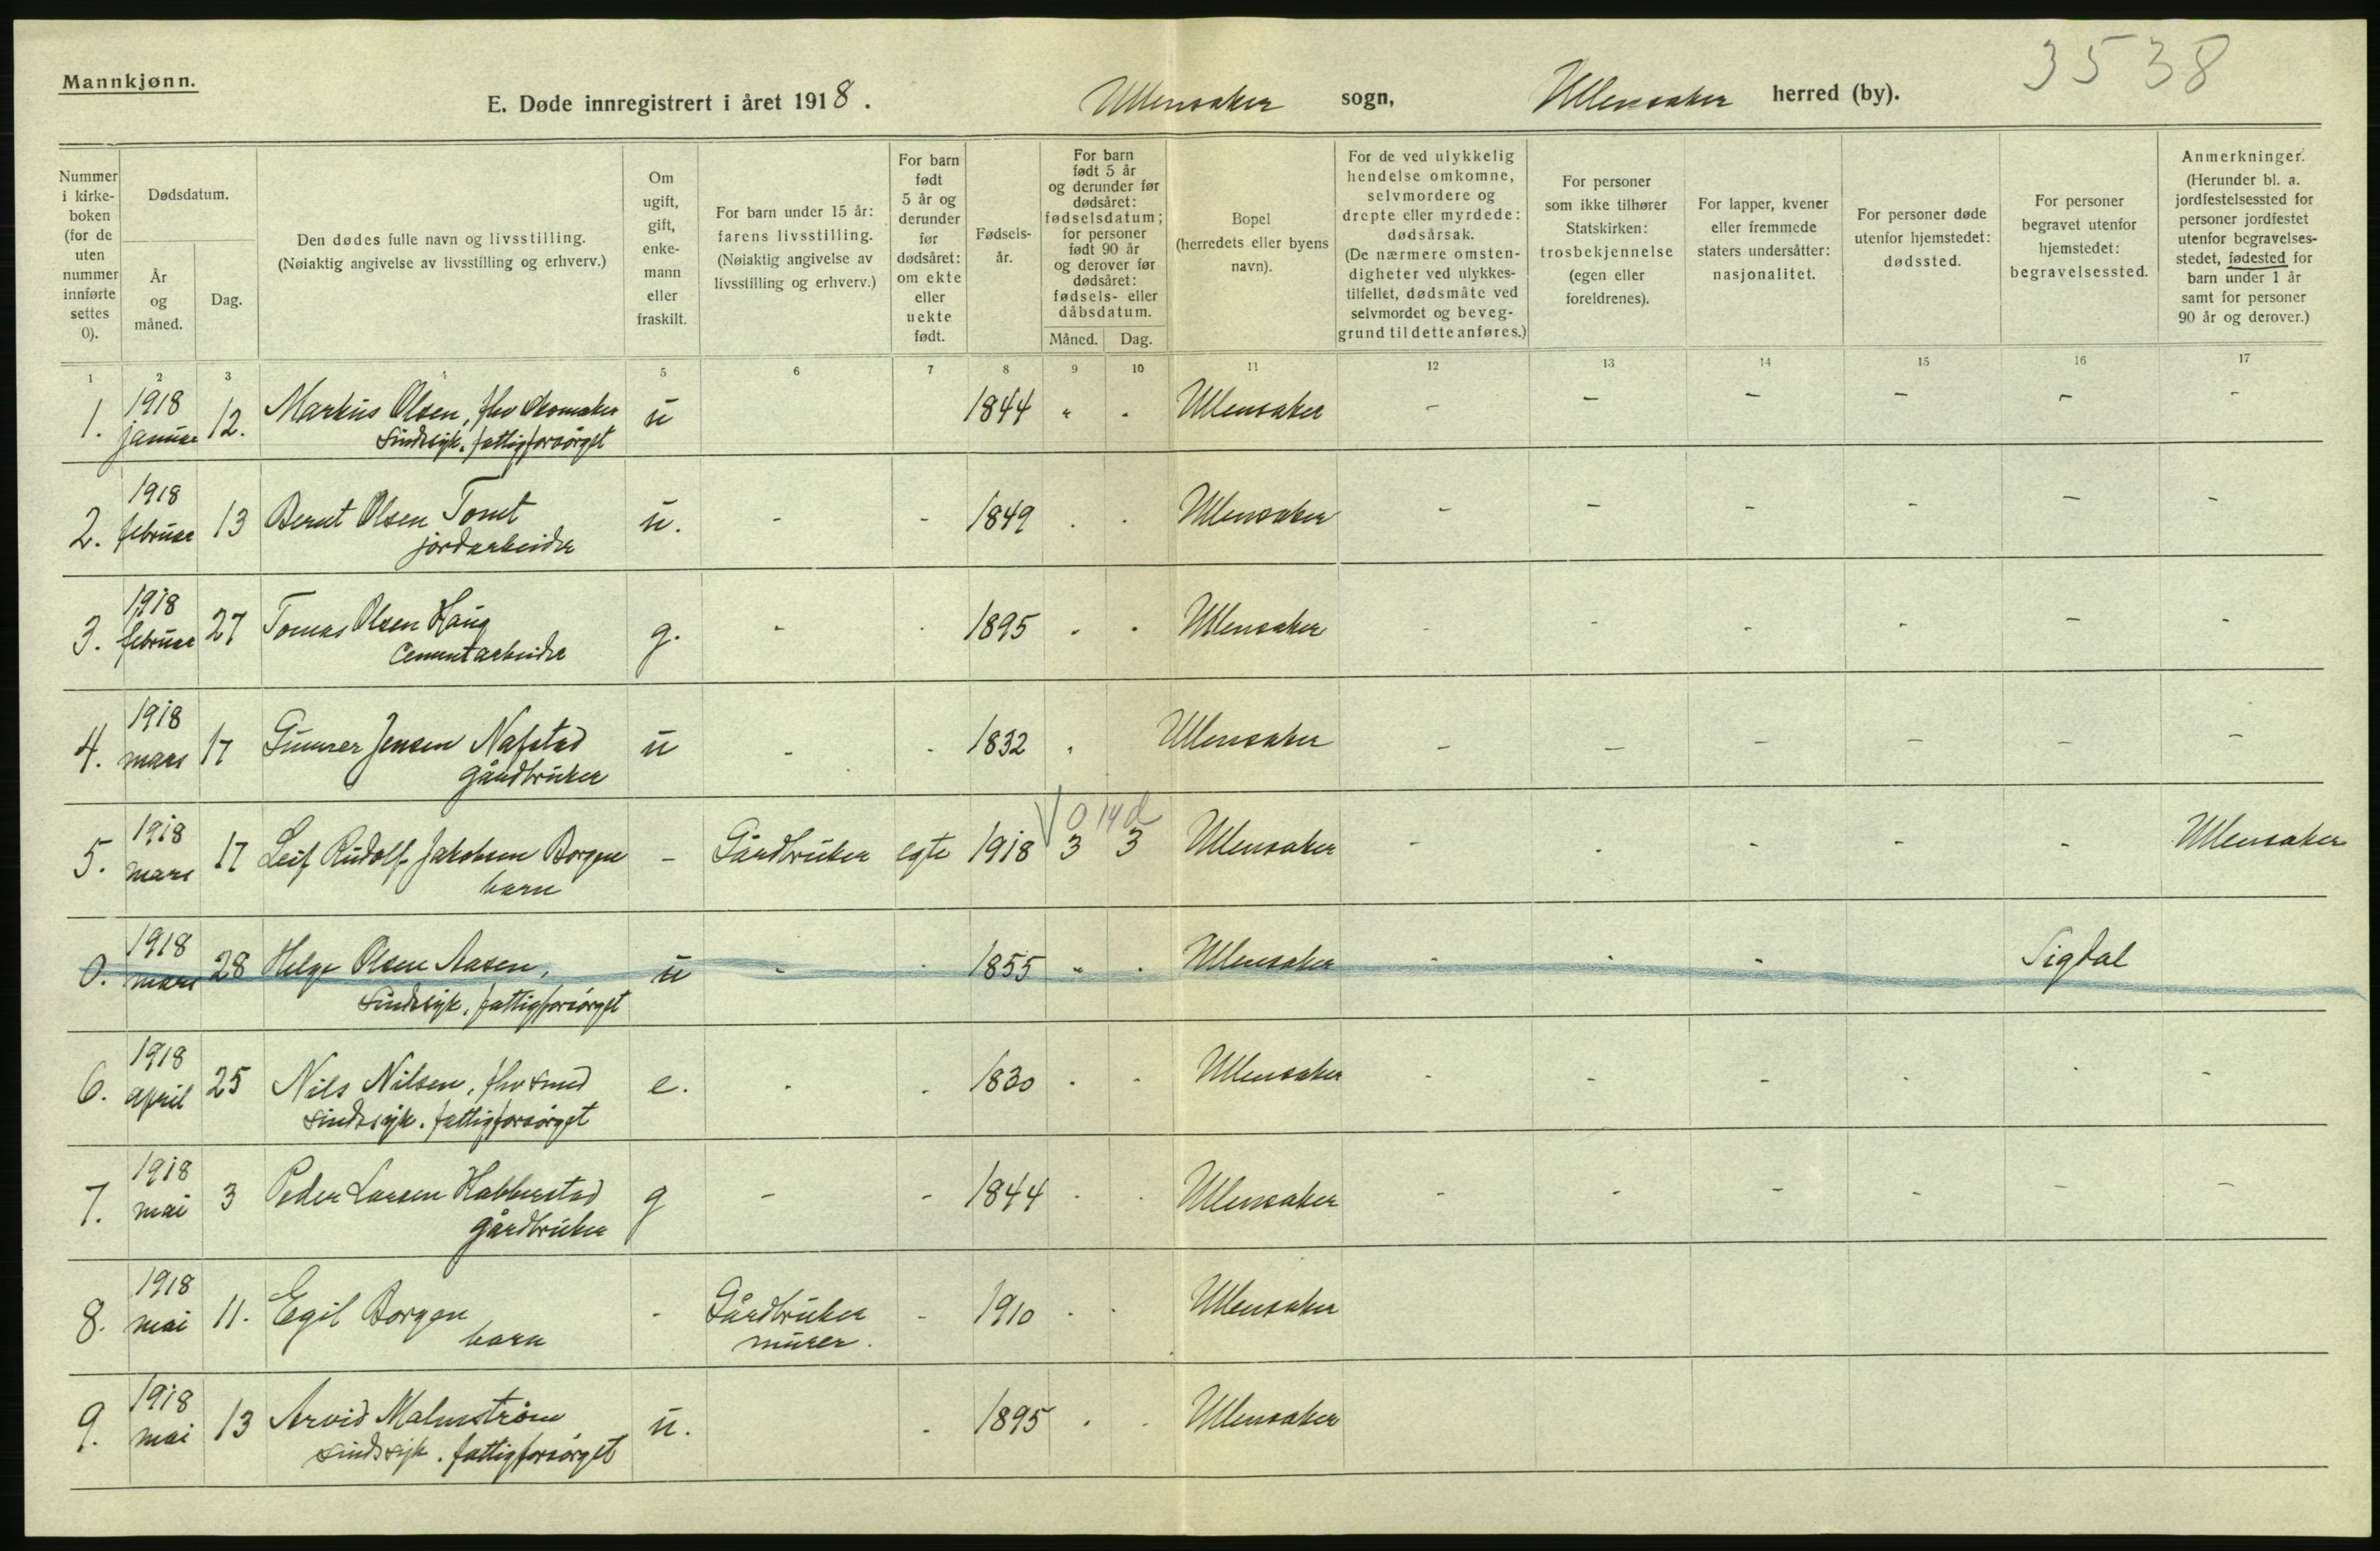 Mannkjønn.
3538
E. Døde innregistrert i året 1918. Ullensaker sogn, Ullensaker herred (by).
Nummer i kirkeboken (for de uten nummer innførte settes 0).
Dødsdatum.
År og måned.
Dag.
Den dødes fulle navn og livsstilling.
(Nøiaktig angivelse av livsstilling og erhverv.)
Om ugift, gift, enkemann eller fraskilt.
For barn under 15 år: farens livsstilling.
(Nøiaktig angivelse av livsstilling og erhverv.)
For barn født 5 år og derunder før dødsåret: om ekte eller uekte født.
Fødselsår.
For barn født 5 år og derunder før dødsåret: fødselsdatum; for personer født 90 år og derover før dødsåret: fødsels- eller dåbsdatum.
Måned. Dag.
Bopel (herredets eller byens navn).
For de ved ulykkelig hendelse omkomne, selvmordere og drepte eller myrdede: dødsårsak.
(De nærmere omstendigheter ved ulykkestilfellet, dødsmåte ved selvmordet og beveggrund til dette anføres.)
For personer som ikke tilhører Statskirken: trosbekjennelse (egen eller foreldrenes).
For lapper, kvener eller fremmede staters undersåtter: nasjonalitet.
For personer døde utenfor hjemstedet: dødssted.
For personer begravet utenfor hjemstedet: begravelsessted.
Anmerkninger.
(Herunder bl. a. jordfestelsessted for personer jordfestet utenfor begravelsesstedet, fødested for barn under 1 år samt for personer 90 år og derover.)
1 2 3 4 5 6 7 8 9 10 11 12 13 14 15 16 17
1. 1918 januar 12. Markus Olsen, fhv skomaker u 1844 " - Ullensaker - - - - - -
Sindssyk. fattigforsørget
2. 1918 februar 13 Bernt Olsen Tomt u. - - 1849 - - Ullensaker - - - - - -
jordarbeider
3. 1918 februar 27 Tomas Olsen Haug g. - - 1895 - - Ullensaker - - - - - -
Cementarbeider
4. 1918 mars 17 Gunner Jensen Nafstad u - - 1832 - Ullensaker - - - - - -
gårdbruker
0 14 d
5. 1918 mars 17 Leif Rudolf Jakobsen Borgen - Gårdbruker egte 1918 3 3 Ullensaker - - - - - Ullensaker
barn
0. 1918 mars 28 Helge Olsen Aasen, u - - 1855 " - Ullensaker - - - Sigdal
Sindssyk. fattigforsørget
6. 1918 april 25 Nils Nilsen, fhv smed e. - - 1830 - - Ullensaker - - - - - -
sindssyk. fattigforsørget
7. 1918 mai 3 Peder Larsen Habberstad g - - 1844 - - Ullensaker - - - - - -
gårdbruker
8. 1918 mai 11. Egil Borgen - Gårdbruker - 1910 - - Ullensaker
barn murer.
9. 1918 mai 13 Arvid Malmstrøm u. - 1895 - - Ullensaker
sindssyk. fattigforsørget